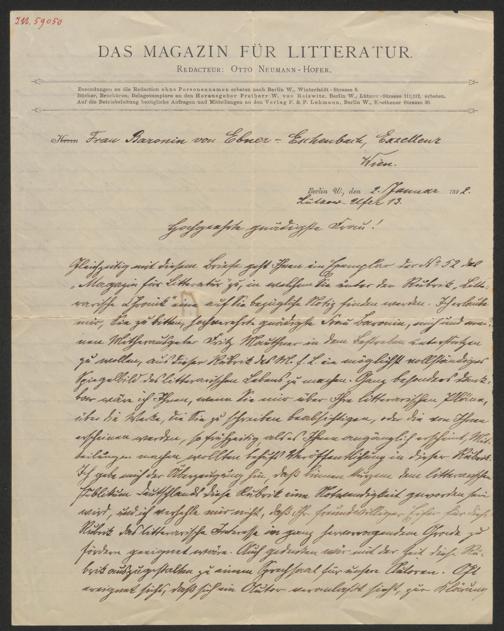 I.N. 59050
DAS MAGAZIN FÜR LITTERATUR.
REDACTEUR: OTTO NEUMANN-HOFER.
Zusendungen an die Redaction ohne Personennamen erbeten nach Berlin W., Winterfeldt-Strasse 8.
Bücher, Broschüren, Belagexemplare an den Herausgeber Freiherr W. von Reiswitz, Berlin W., Lützow-Strasse erbeten.
Auf die Betriebsleitung bezügliche Anfragen und Mitteilungen an den Verlag F. & P. Lehmann, Berlin W., Koethener Strasse
Herrn Frau Baronin von Ebner-Eschenbach, Excellenz
Wien.
Berlin W., den 2. Januar 1892.
Lützow-Ufer 13.
Hochgeehrte gnädigste Frau!
Gleichzeitig mit diesem Briefe geht Ihnen ein Exemplar der No 52 des
„Magazin für Litteratur" zu, in welchem Sie unter der Rubrik „Litte-
rarische Chronik" eine auf Sie bezügliche Notiz finden werden. Ich erlaube
mir, Sie zu bitten, hochverehrte gnädigste Frau Baronin, mich und mei-
nen Mitherausgeber Fritz Mauthner in dem Bestreben unterstützen
zu wollen, aus dieser Rubrik des M. f. L. ein möglichst vollständiges
Spiegelbild des litterarischen Lebens zu machen. Ganz besonders dank-
bar wäre ich Ihnen, wenn Sie mir über Ihre litterarischen Pläne,
über die Werke, die Sie zu schreiben beabsichtigen, oder die von Ihnen
erscheinen werden, so frühzeitig als es Ihnen angänglich erscheint, Mit-
teilungen machen wollten behufs Veröffentlichung in dieser Rubrik.
Ich gebe mich der Überzeugung hin, daß binnen kurzem dem litterarischen
Publikum Deutschlands diese Rubrik eine Notwendigkeit geworden sein
wird, und ich verhehle mir nicht, daß Ihre freundwilliger für diese
Rubrik das litterarische Interesse in ganz hervorragendem Grade zu
fördern geeignet wäre. Auch gedenken wir mit der Zeit diese Ru-
brik auszugestalten zu einem Sprechsaal für unsere Autoren. Oft
ereignet sich's, daß sich ein Autor veranlaßt sieht, zur Klärung